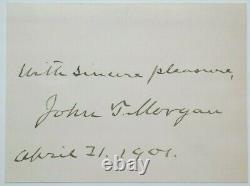 With sincere pleasure,
John T. Morgan
April 21, 1901.
ebay